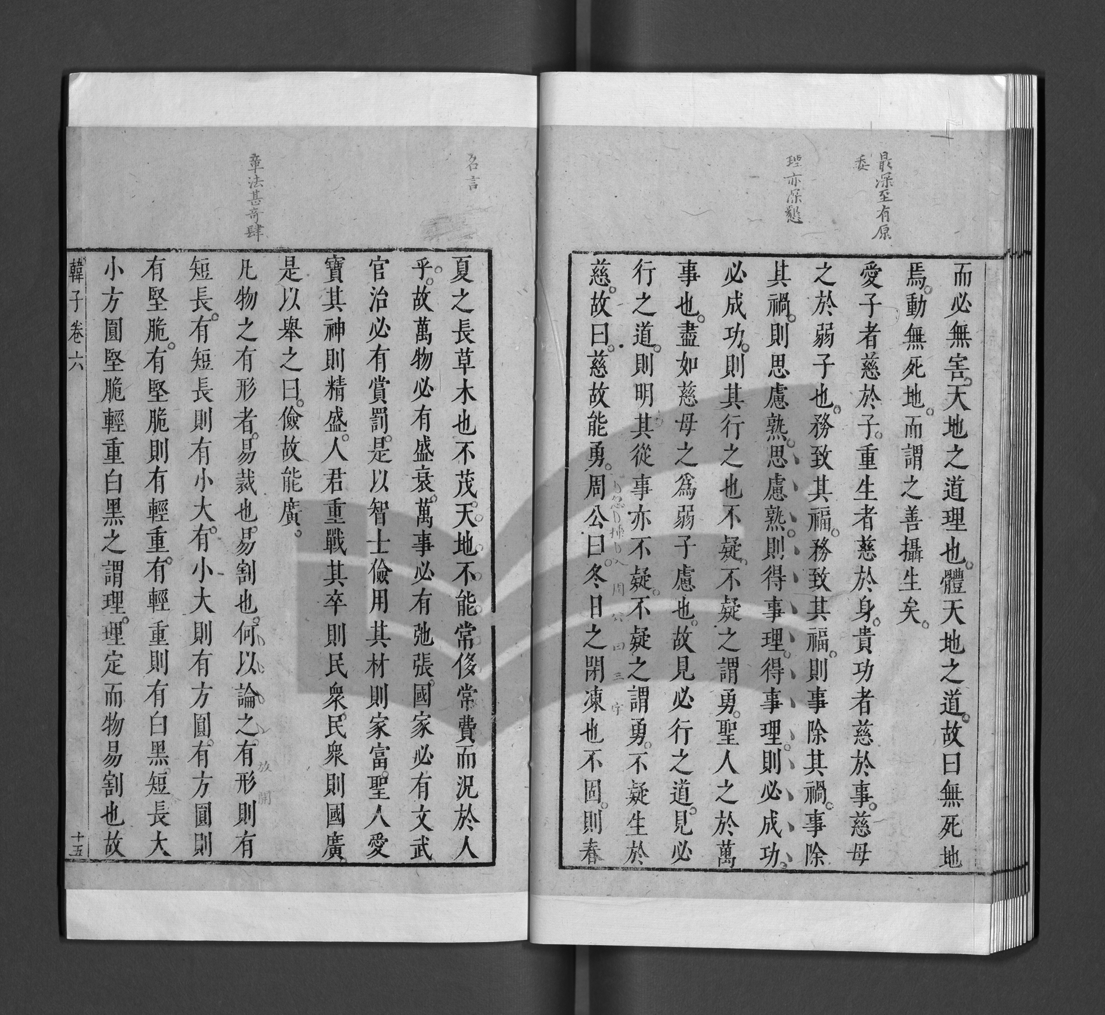 最深至有原
委
理亦深懇
而必無害。天地之道理也。體天地之道。故曰無死地
焉。動無死地。而謂之善攝生矣。
愛子者慈於子。重生者慈於身。貴功者慈於事。慈母
之於弱子也。務致其福。務致其福。則事除其禍。事除
其禍。則思慮熟。思慮熟。則得事理。得事理。則必成功。
必成功。則其行之也不疑。不疑之謂勇。聖人之於萬
事也。盡如慈母之爲弱子慮也。故見必行之道。見必
行之道。則明其從事亦不疑。不疑之謂勇。不疑生於
慈。故曰。慈故能勇。周公曰。冬日之閉凍也不固。則春
名言
章法甚奇肆
夏之長草木也不茂。天地不能常侈常費。而況於人
乎。故萬物必有盛衰。萬事必有弛張。國家必有文武
官治必有賞罰。是以智士儉用其材則家富。聖人愛
寶其神則精盛。人君重戰其卒則民衆。民衆則國廣。
是以舉之曰。儉故能廣。
凡物之有形者。易裁也。易割也。何以論之。有形則有
短長。有短長則有小大。有小大則有方圓。有方圓則
有堅脆。有堅脆則有輕重。有輕重則有白黑。短長大
小方圓堅脆輕重白黑之謂理。理定而物易割也故
韓子卷六
十五